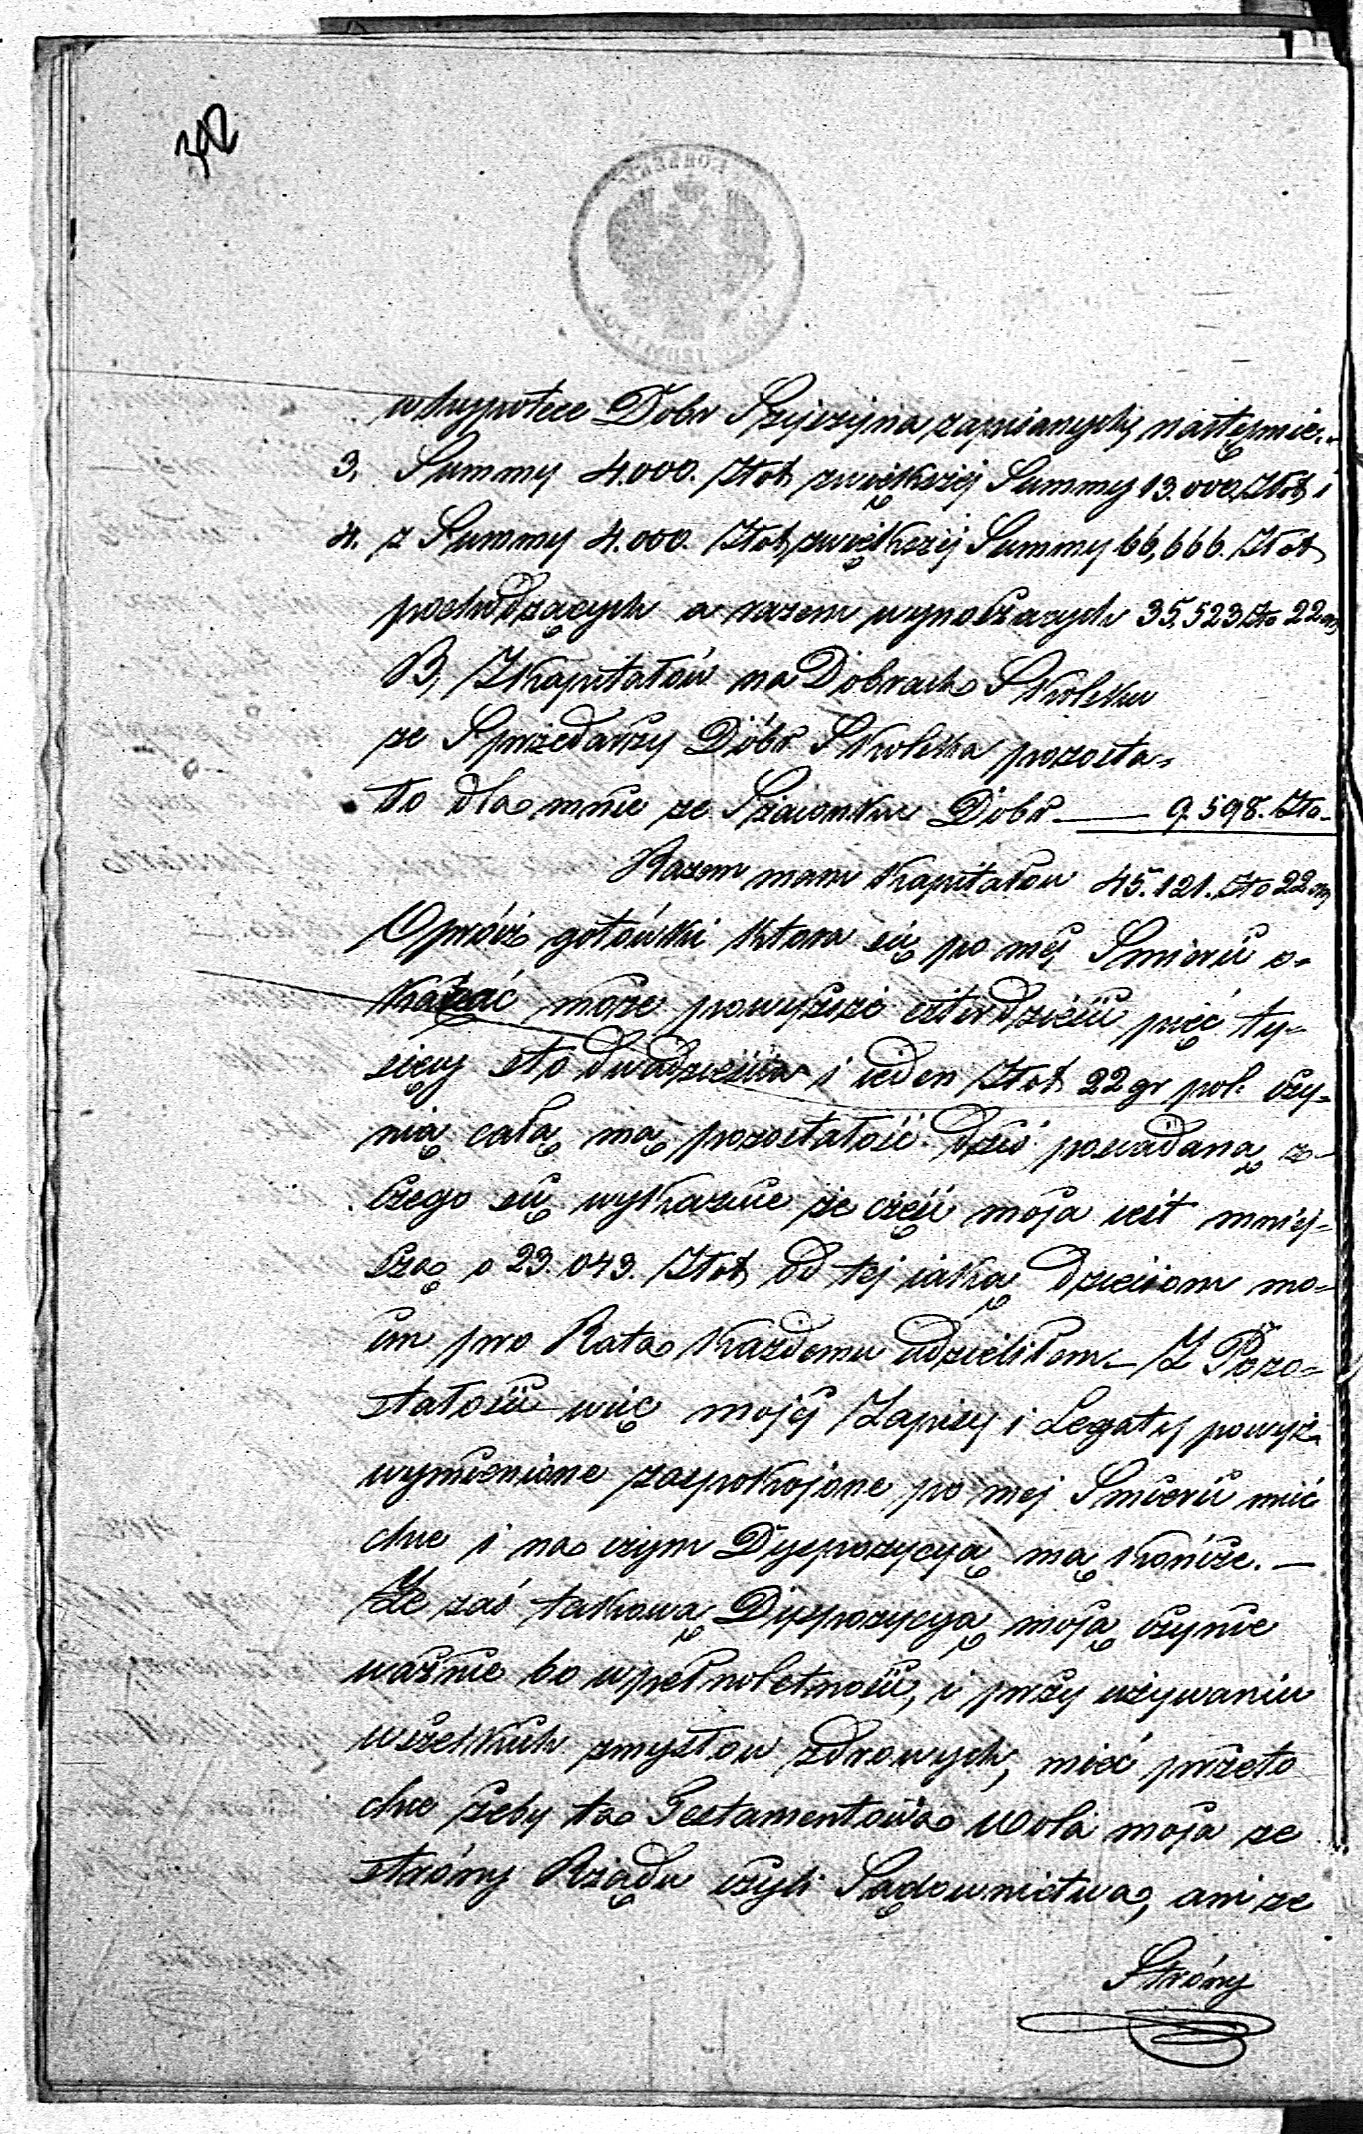 342
w hypotece Dobr Szyszyna zapisanych następnie
3, Summy 4.000. Złot, zwiększéj Summy 13.000. Złot, i
4. z Summy 4.000. Złot, zwiększéj Summy 66,666. Złot,
pochodzących a razem wynoszących 35,523 Zło 22
B, Z Kapitałów na Dobrach Skolsku
ze Sprzedarzy Dóbr Skolska pozosta=
ło dla mnie ze Szacunku Dobr — 9.598. Zło
Razem mam Kapitałow 45.121. Zło 22
Oprócz gotówki która się po méj Smierci o=
kazać może powyższe czterdzieści pięć ty=
sięcy sto dwadzieścia i ieden Złot, 22 gr pol. czy=
nią całą mą pozostałość dziś posiadaną z
czego się wykazuie że część moja iest mniej=
szą o 23.043. Złot, od tej iaką dzieciom mo=
im pro Rata Każdemu udzieliłem — Z Pozo=
stałości więc mojéj Zapisy i Legaty powyż
wymienione zaspokojone po mej Smierci mieć
chce i na czym Dyspozycyą mą kończe. —
Że zaś takową Dyspozycyą moją czynie
ważnie bo w pełnoletności, i przy używaniu
wszelkich zmysłow zdrowych, mieć przeto
chce żeby ta Testamentowa wola moja ze
stróny Rządu czyli Sądownictwa, ani ze
Stróny